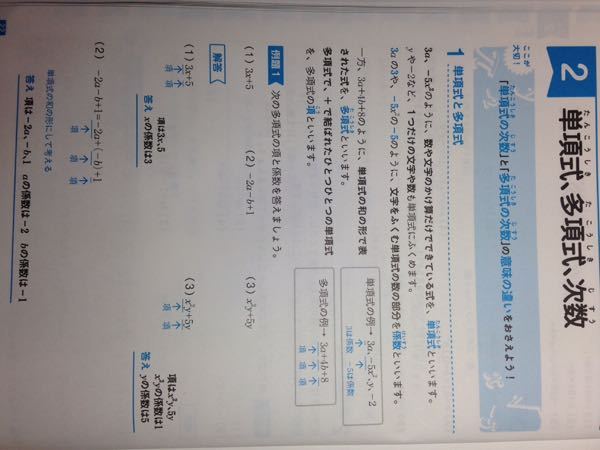 2
単項式、多項式、次数
たんこうしき たこうしき じすう
ここが大切!
「単項式の次数」と「多項式の次数」の意味の違いをおさえよう!
1 単項式と多項式
3a、−5x²のように、数や文字のかけ算だけでできている式を、単項式といいます。
yや−2など、1つだけの文字や数も単項式にふくめます。
3aの3や、−5x²の−5のように、文字をふくむ単項式の数の部分を係数といいます。
単項式の例→ 3a、−5x²、y、−2
3は係数 −5は係数
一方、3a+4b+8のように、単項式の和の形で表
された式を、多項式といいます。
多項式で、+で結ばれたひとつひとつの単項式
を、多項式の項といいます。
多項式の例→ 3a+4b+8
項 項 項
例題1 次の多項式の項と係数を答えましょう。
(1) 3x+5 (2) −2a−b+1 (3) x²y+5y
解答
(1) 3x+5
項 項
項は3x、5
答え xの係数は3
(3) x²y+5y
項 項
項はx²y、5y
x²yの係数は1
答え yの係数は5
(2) −2a−b+1=−2a+(−b)+1
項 項 項
単項式の和の形にして考える
答え 項は−2a、−b、1 aの係数は−2 bの係数は−1